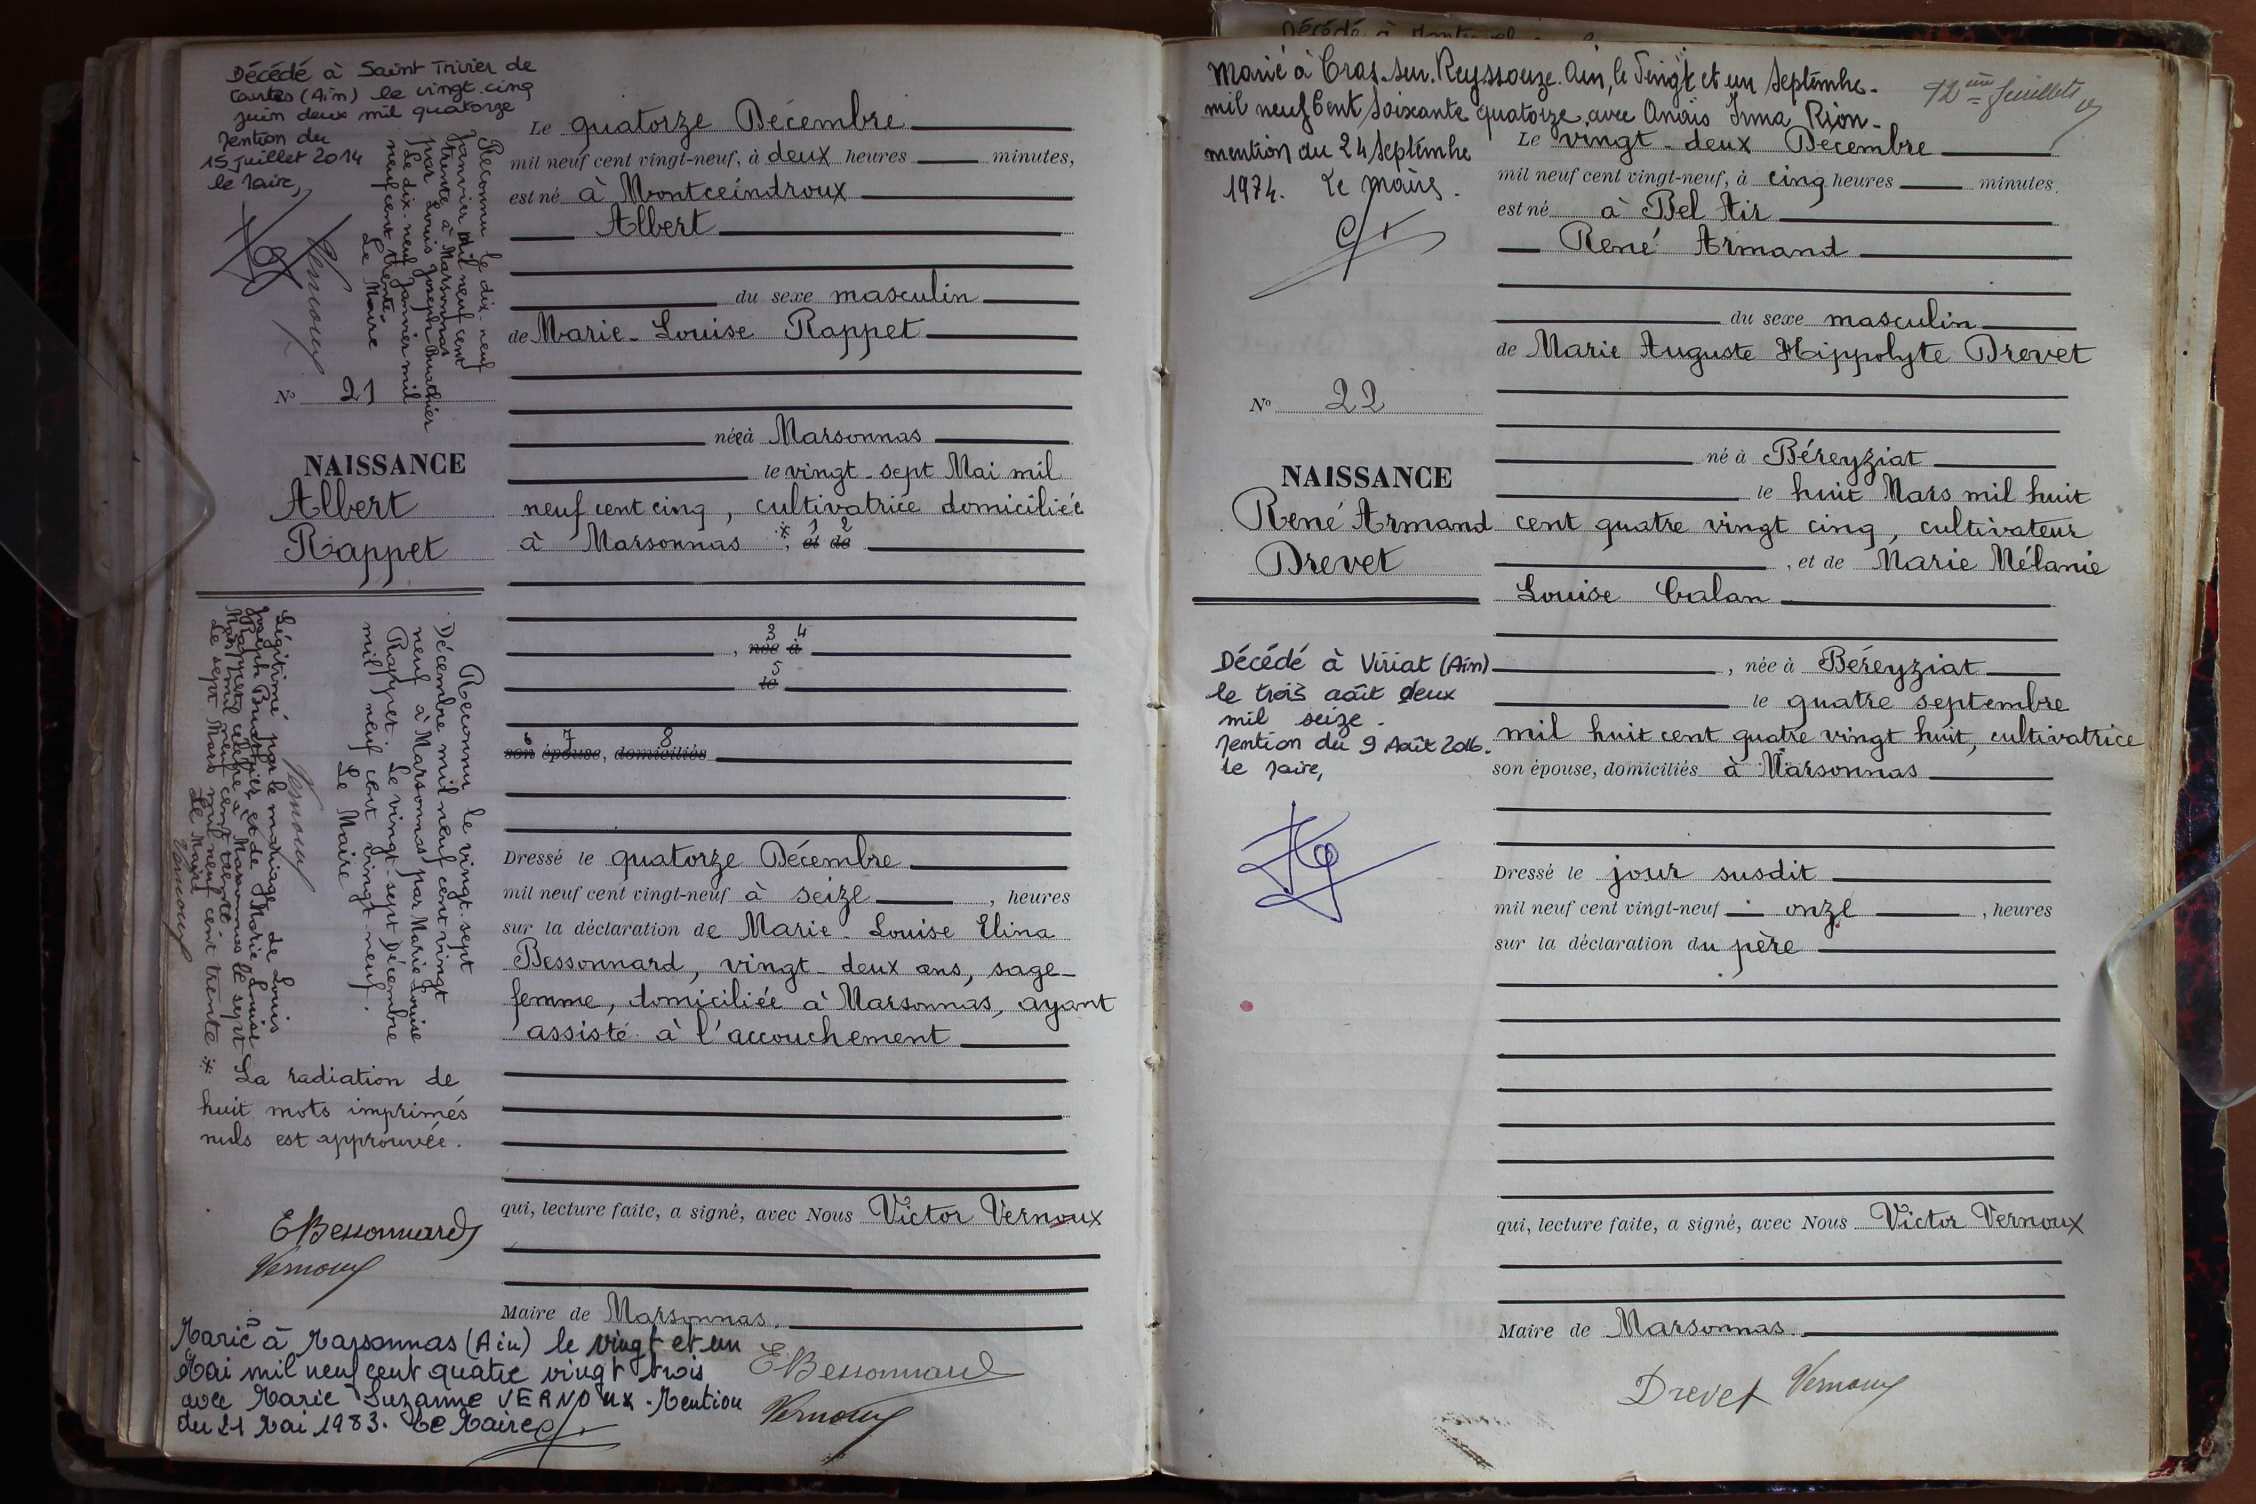 Décédé à Saint Trivier de
Courtes (Ain) le vingt-cinq
juin deux mil quatorze
Mention du
15 juillet 2014
le Maire,
Reconnu le dix-neuf
janvier mil neuf cent
trente à Marsonnas
par Louis Joseph Buathier
Le dix-neuf janvier mil
neuf cent trente
Le Maire
Vernoux
N° 21
NAISSANCE
Albert
Rappet
Reconnu le vingt-sept
Décembre mil neuf cent vingt
neuf à Marsonnas par Marie Louise
Rappet. Le vingt-sept Décembre
mil neuf cent vingt-neuf.
Le Maire
Vernoux
Légitimé par le mariage de Louis
Joseph Buathier et de Marie Louise
Rappet célébré à Marsonnas le sept
Mars mil neuf cent trente.
Le sept Mars mil neuf cent trente
Le Maire
Vernoux
* La radiation de
huit mots imprimés
nuls est approuvée.
EBessonnard
Vernoux
Le quatorze Décembre
mil neuf cent vingt-neuf, à deux heures minutes,
est né à Montceindroux
Albert
du sexe masculin
de Marie-Louise Rappet
née à Marsonnas
le vingt-sept Mai mil
neuf cent cinq, cultivatrice domiciliée
à Marsonnas *, et de
1 2
3 4
, née à
5
le
6 7 8
son épouse, domiciliés
Dressé le quatorze Décembre
mil neuf cent vingt-neuf à seize , heures
sur la déclaration de Marie-Louise Elina
Bessonnard, vingt-deux ans, sage-
femme, domiciliée à Marsonnas, ayant
assisté à l'accouchement
qui, lecture faite, a signé, avec Nous Victor Vernoux
Maire de Marsonnas.
EBessonnard
Vernoux
Marié à Marsonnas (Ain) le vingt et un
Mai mil neuf cent quatre vingt trois
avec Marie Suzanne VERNOUX. Mention
du 21 Mai 1983. Le Maire
Marié à Cras-sur-Reyssouze. Ain, le Vingt et un Septembre
mil neuf Cent Soixante quatorze avec Anaïs Irma Rion-
mention du 24 Septembre
1974. Le maire.
12ème feuillet
N° 22
NAISSANCE
René Armand
Drevet
Décédé à Viriat (Ain)
le trois août deux
mil seize.
Mention du 9 Août 2016.
Le Maire,
Le vingt-deux Décembre
mil neuf cent vingt-neuf, à cinq heures minutes.
est né à Bel Air
René Armand
du sexe masculin
de Marie Auguste Hippolyte Drevet
né à Béreyziat
le huit Mars mil huit
cent quatre vingt cinq, cultivateur
, et de Marie Mélanie
Louise Calan
, née à Béreyziat
le quatre septembre
mil huit cent quatre vingt huit, cultivatrice
son épouse, domiciliés à Marsonnas
Dressé le jour susdit
mil neuf cent vingt-neuf à onze , heures
sur la déclaration du père
qui, lecture faite, a signé, avec Nous Victor Vernoux
Maire de Marsonnas
Drevet Vernoux